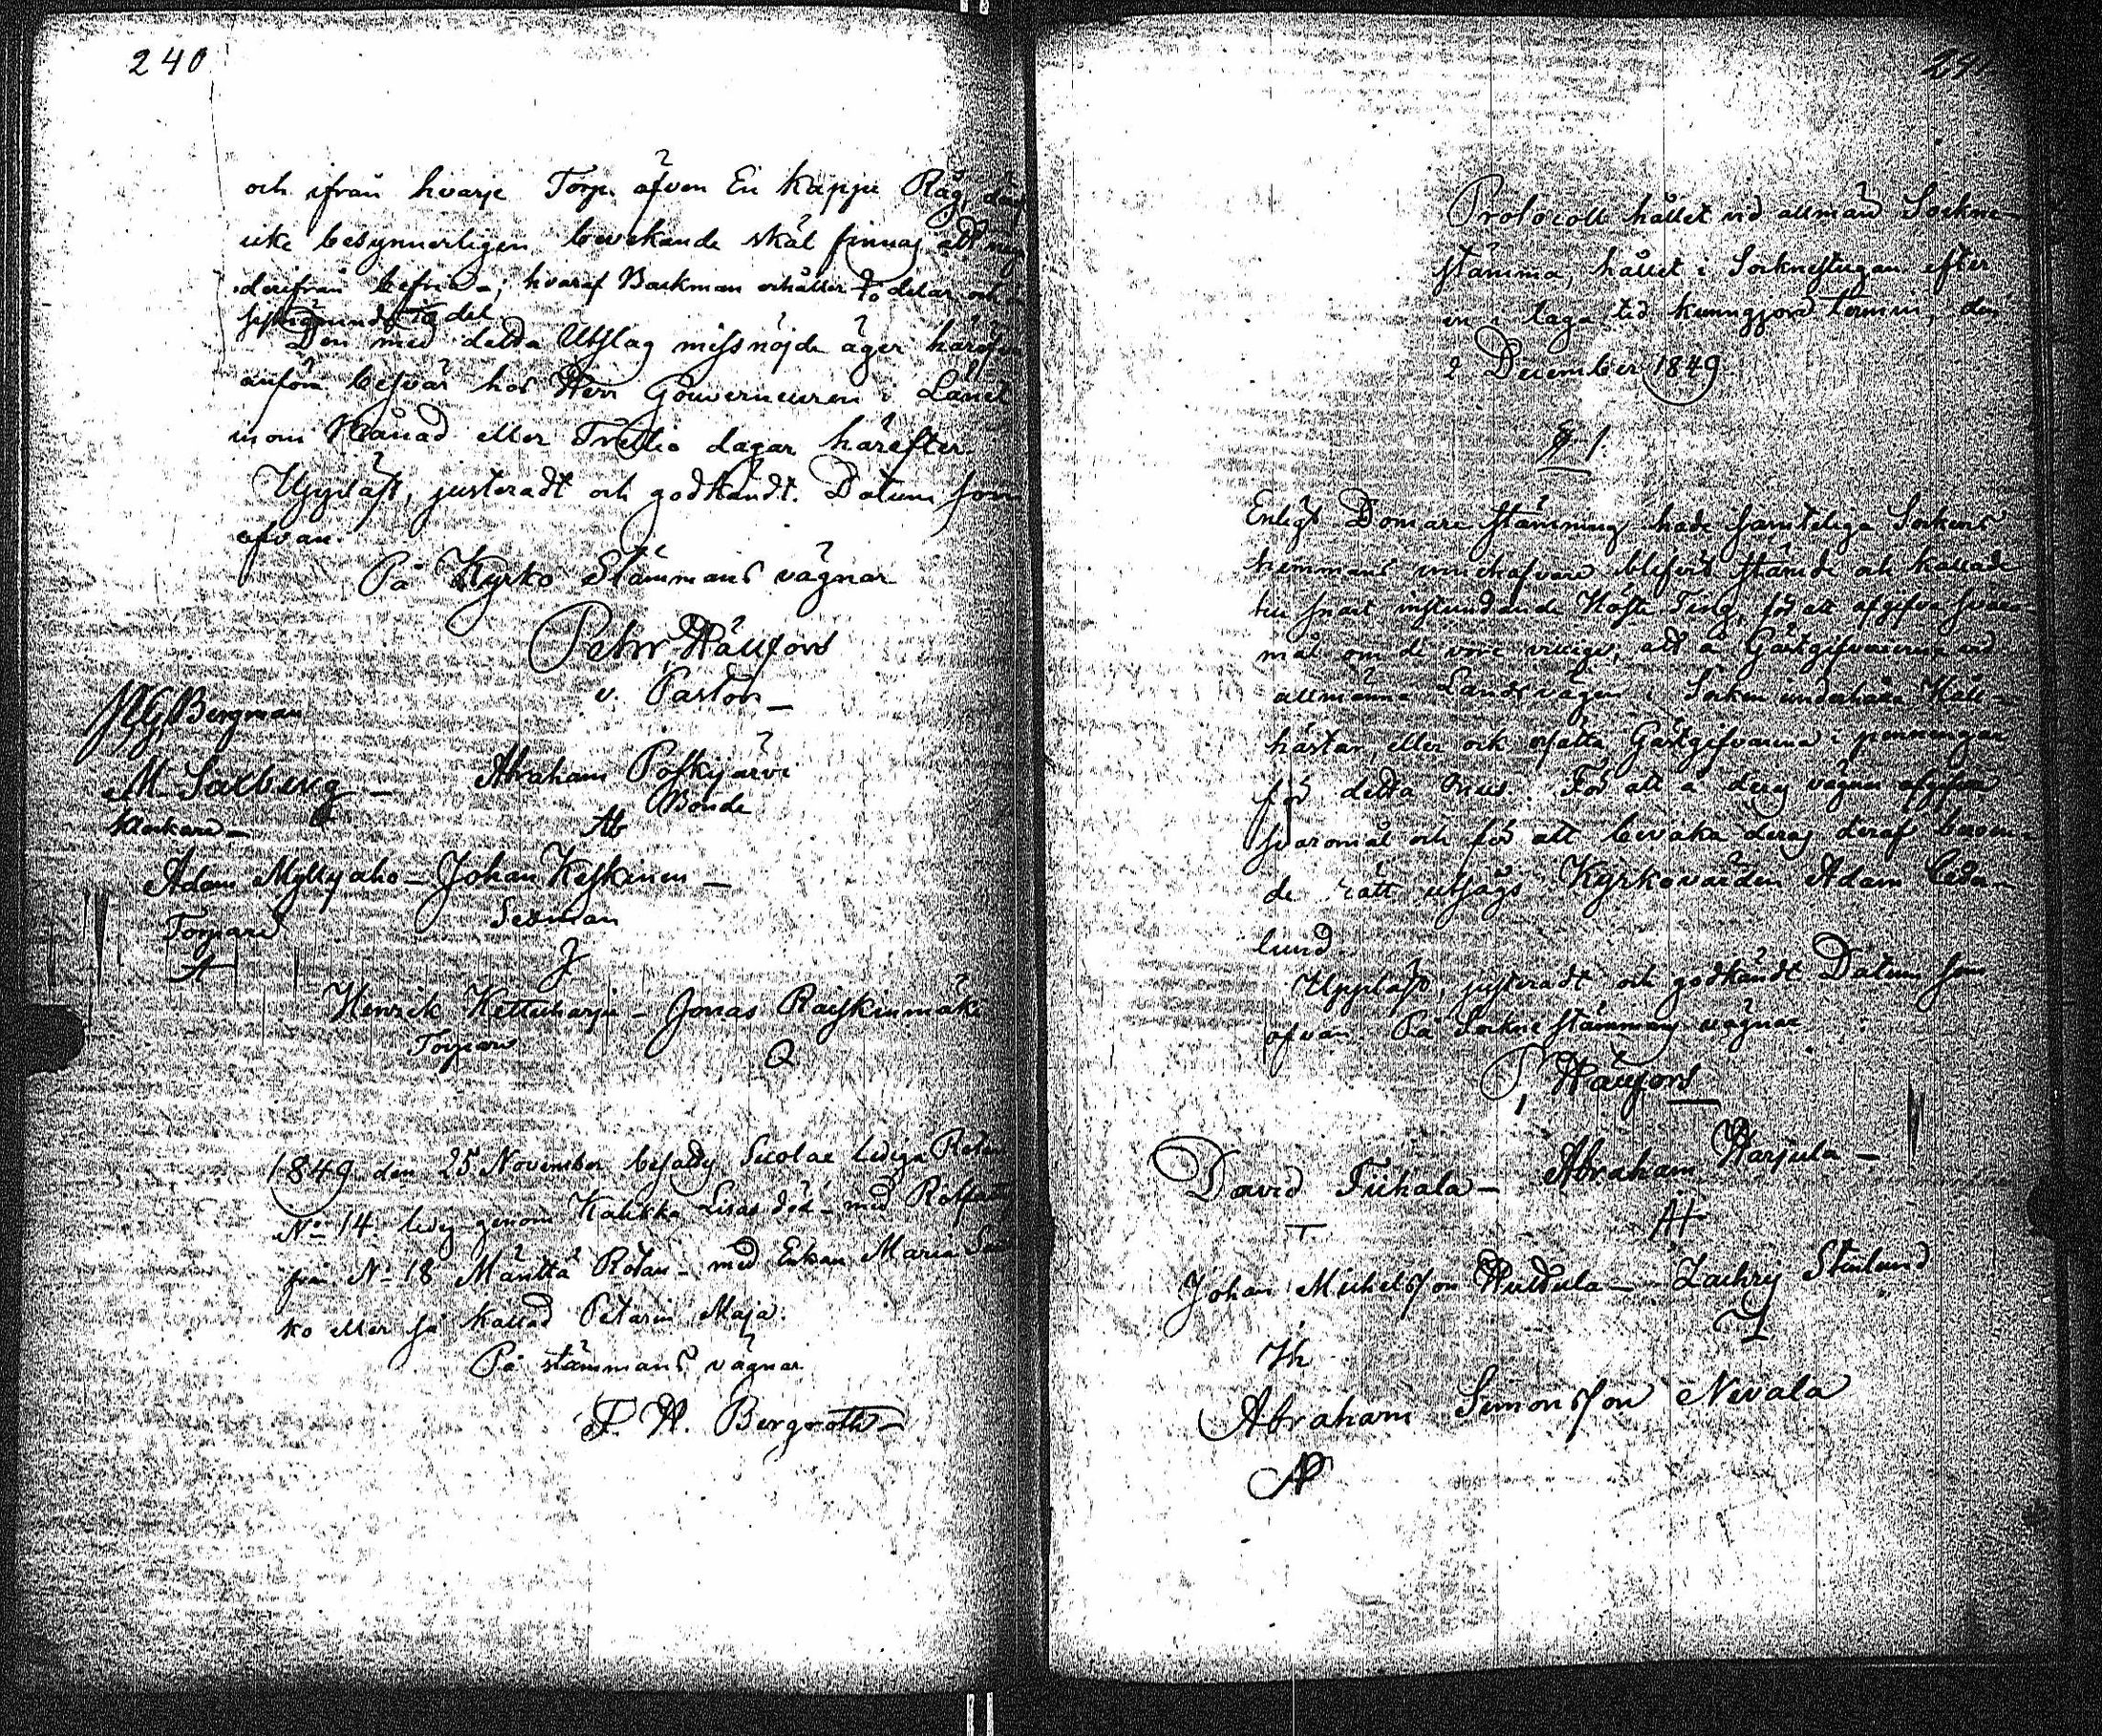 240
och ifrån hvarje Torp äfven En kappe Råg, där
icke besynnerligen bevekande skäl finnas att
derifrån befria; hvaraf Backman erhåller delar och
del
Den med detta Utslag missnöjde äger häröfver
anföra besvär hos Herr Gouverneuren i Länet
inom Månad eller Trettio dagar härefter.
Uppläst, justeradt och godkändt. Datum som
ofvan.
På Kyrko Stämmans vägnar
Petter Hällfors
v. Pastor
Bergman
M. Saxberg
Klockare
Abraham Poskjärvi
Bonde
Ab
Adam Myllyaho - Johan Keskinen -
Torpare
Sexman
A
J
Henrik Kettuharju - Jonas Raiskinmäki
Torpare
1849 den 25 November besattes Scolae lediga Rote
No 14. ledig genom Kalikka Lisas död - med
från No 18 Mänttä Rotan - med Enkan Maria
ko eller så kallad Petarin Maja.
På stämmans vägnar
F. H. Bergroth
241
Protocoll hållet vid allmän Sockne-
stämma, hållet i Socknestugan efter
en i laga tid kungjord termin, den
2 December 1849.
§ 1.
Enligt Domare stämning hade samtelige Sockens
hemmans innehafvare blifvit stämde och kallade
till snart instundande Höste Ting, för att afgifva svaro-
mål om de vore villige, att å Gästgifverierne vid
allmänna Landsvägen i Socken underhålla Håll-
hästar, eller ock ersätta Gästgifvarena i penningar
för detta onus. För att å deras vägnar afgifva
svaromål och för att bevaka deras deraf beroen-
de rätt utsågs Kyrkovärden Adam Ceder-
lund.
Uppläst, justeradt och godkändt Datum som
ofvan. På Sockne stämmans vägnar
P. Hällfors
David Tiihala - Abraham Harjula -
T
AH
Johan Michelsson Huldula - Zachris Stenlund
Abraham Simonsson Nevala